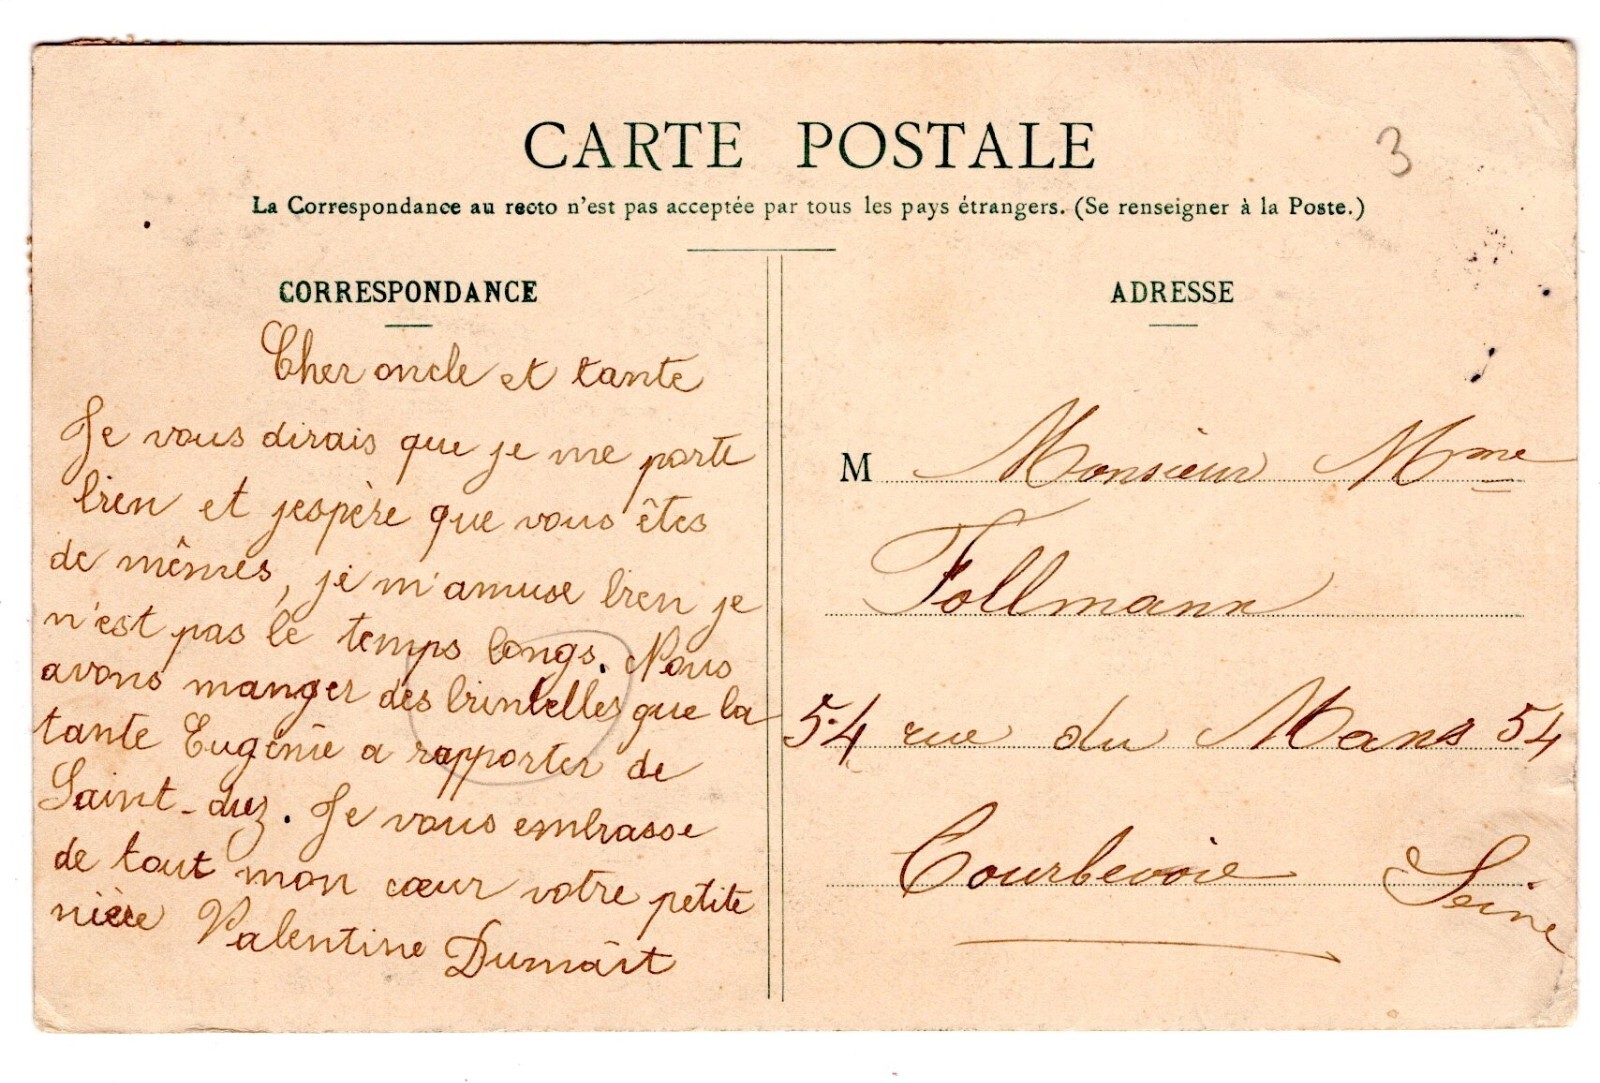 3
CARTE POSTALE
La Correspondance au recto n'est pas acceptée par tous les pays étrangers. (Se renseigner à la Poste.)
CORRESPONDANCE
Cher oncle et tante
Je vous dirais que je me porte
bien et jespère que vous êtes
de mêmes, je m'amuse bien je
n'est pas le temps longs. Nous
avons manger des brinbelles que la
tante Eugénie a rapporter de
Saint-diez. Je vous embrasse
de tout mon cœur votre petite
nièce Valentine
ADRESSE
M Monsieur Mme
Follmann
54 rue du Mans 54
Courbevoie Seine